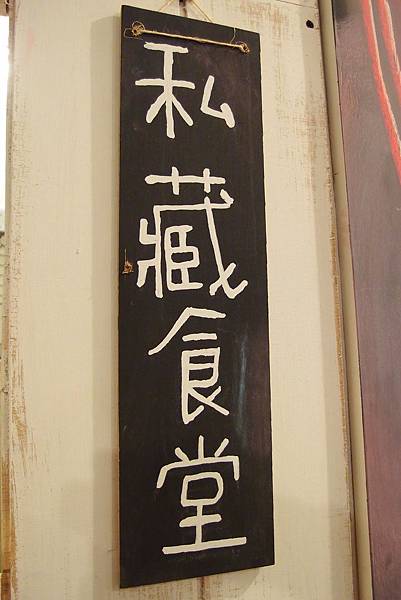 私藏食堂